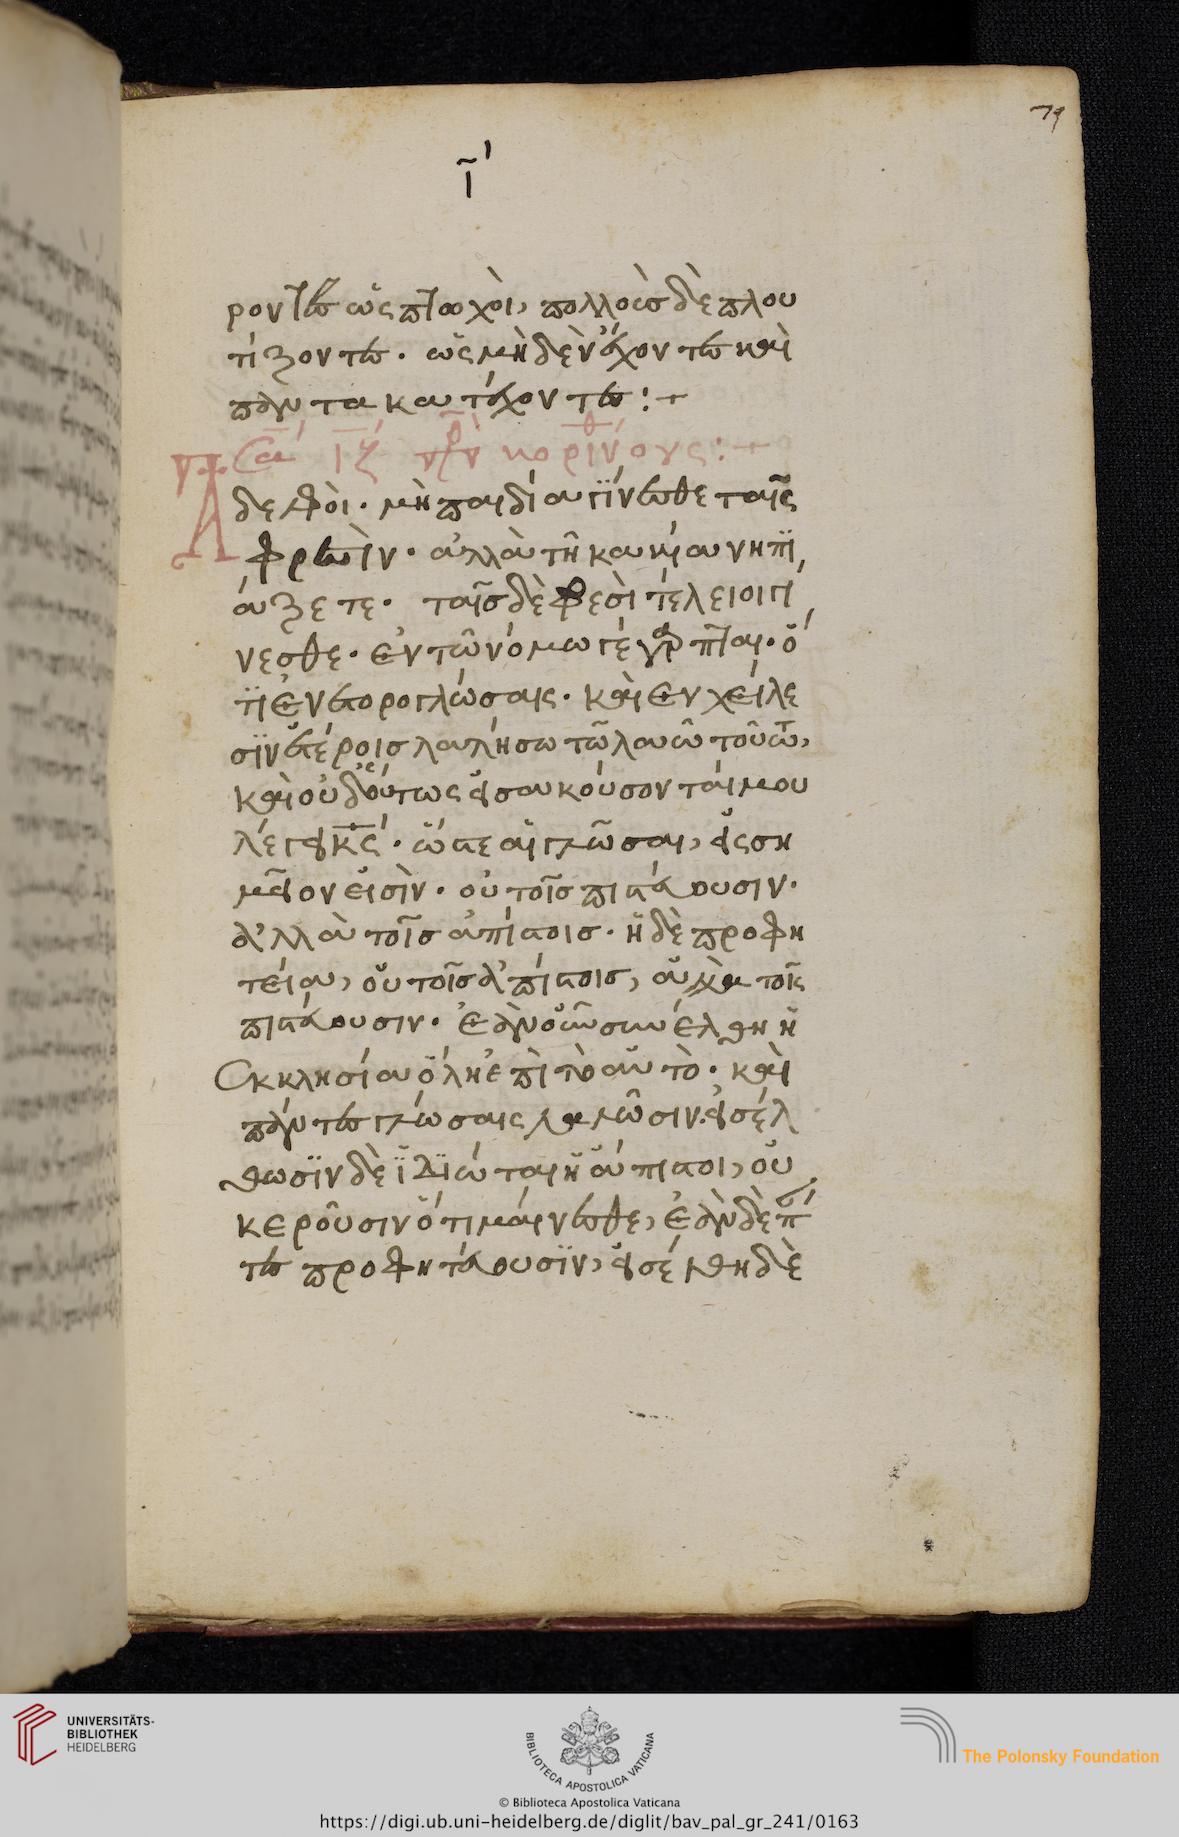 79
ι̃'
ροντες ὡς πτωχοὶ, πολλοὺς δὲ πλου
τίζοντες. ὡς μηδὲν ἔχοντες καὶ
πάντα κατέχοντες:+
Σα ΙΖ πρ κορινθίους:+
Ἀ
δελφοὶ. μὴ παιδία γίνεσθε ταῖς
φρεσὶν. ἀλλὰ τῇ κακία νηπι
άζετε. ταῖς δὲ φρεσὶ τέλειοι γί
νεσθε. ἐν τῶ νόμω γέγραπται. ὅ
τι ἐν ἑτερογλώσαις. καὶ ἐν χείλε
σιν ἑτέροις λαλήσω τῶ λαῶ τούτω,
καὶ οὐδ' οὕτως εἰσακούσονται μου
λέγει κς. ὥστε αἱ γλῶσαι, εἰς ση
μεῖον εἰσὶν. οὐ τοῖς πιστεύουσιν.
ἀλλὰ τοῖς ἀπίστοις. ἡ δὲ προφη
τεία, οὐ τοῖς ἀπίστοις, ἀλλὰ τοῖς
πιστεύουσιν. ἐὰν οὖν συνέλθη ἡ
ἐκκλησία ὅλη ἐπὶ τὸ αὐτὸ. καὶ
πάντες γλώσαις λαλῶσιν. εἰσέλ
θωσιν δὲ ἰδιώται ἢ ἄπιστοι, οὐ
κ ἐροῦσιν ὅτι μαίνεσθε, ἐὰν δὲ πάν
τες προφητεύουσιν, εἰσέλθη δὲ
UNIVERSITÄTS-
BIBLIOTHEK
HEIDELBERG
BIBLIOTECA APOSTOLICA VATICANA
© Biblioteca Apostolica Vaticana
The Polonsky Foundation
https://digi.ub.uni-heidelberg.de/diglit/bav_pal_gr_241/0163